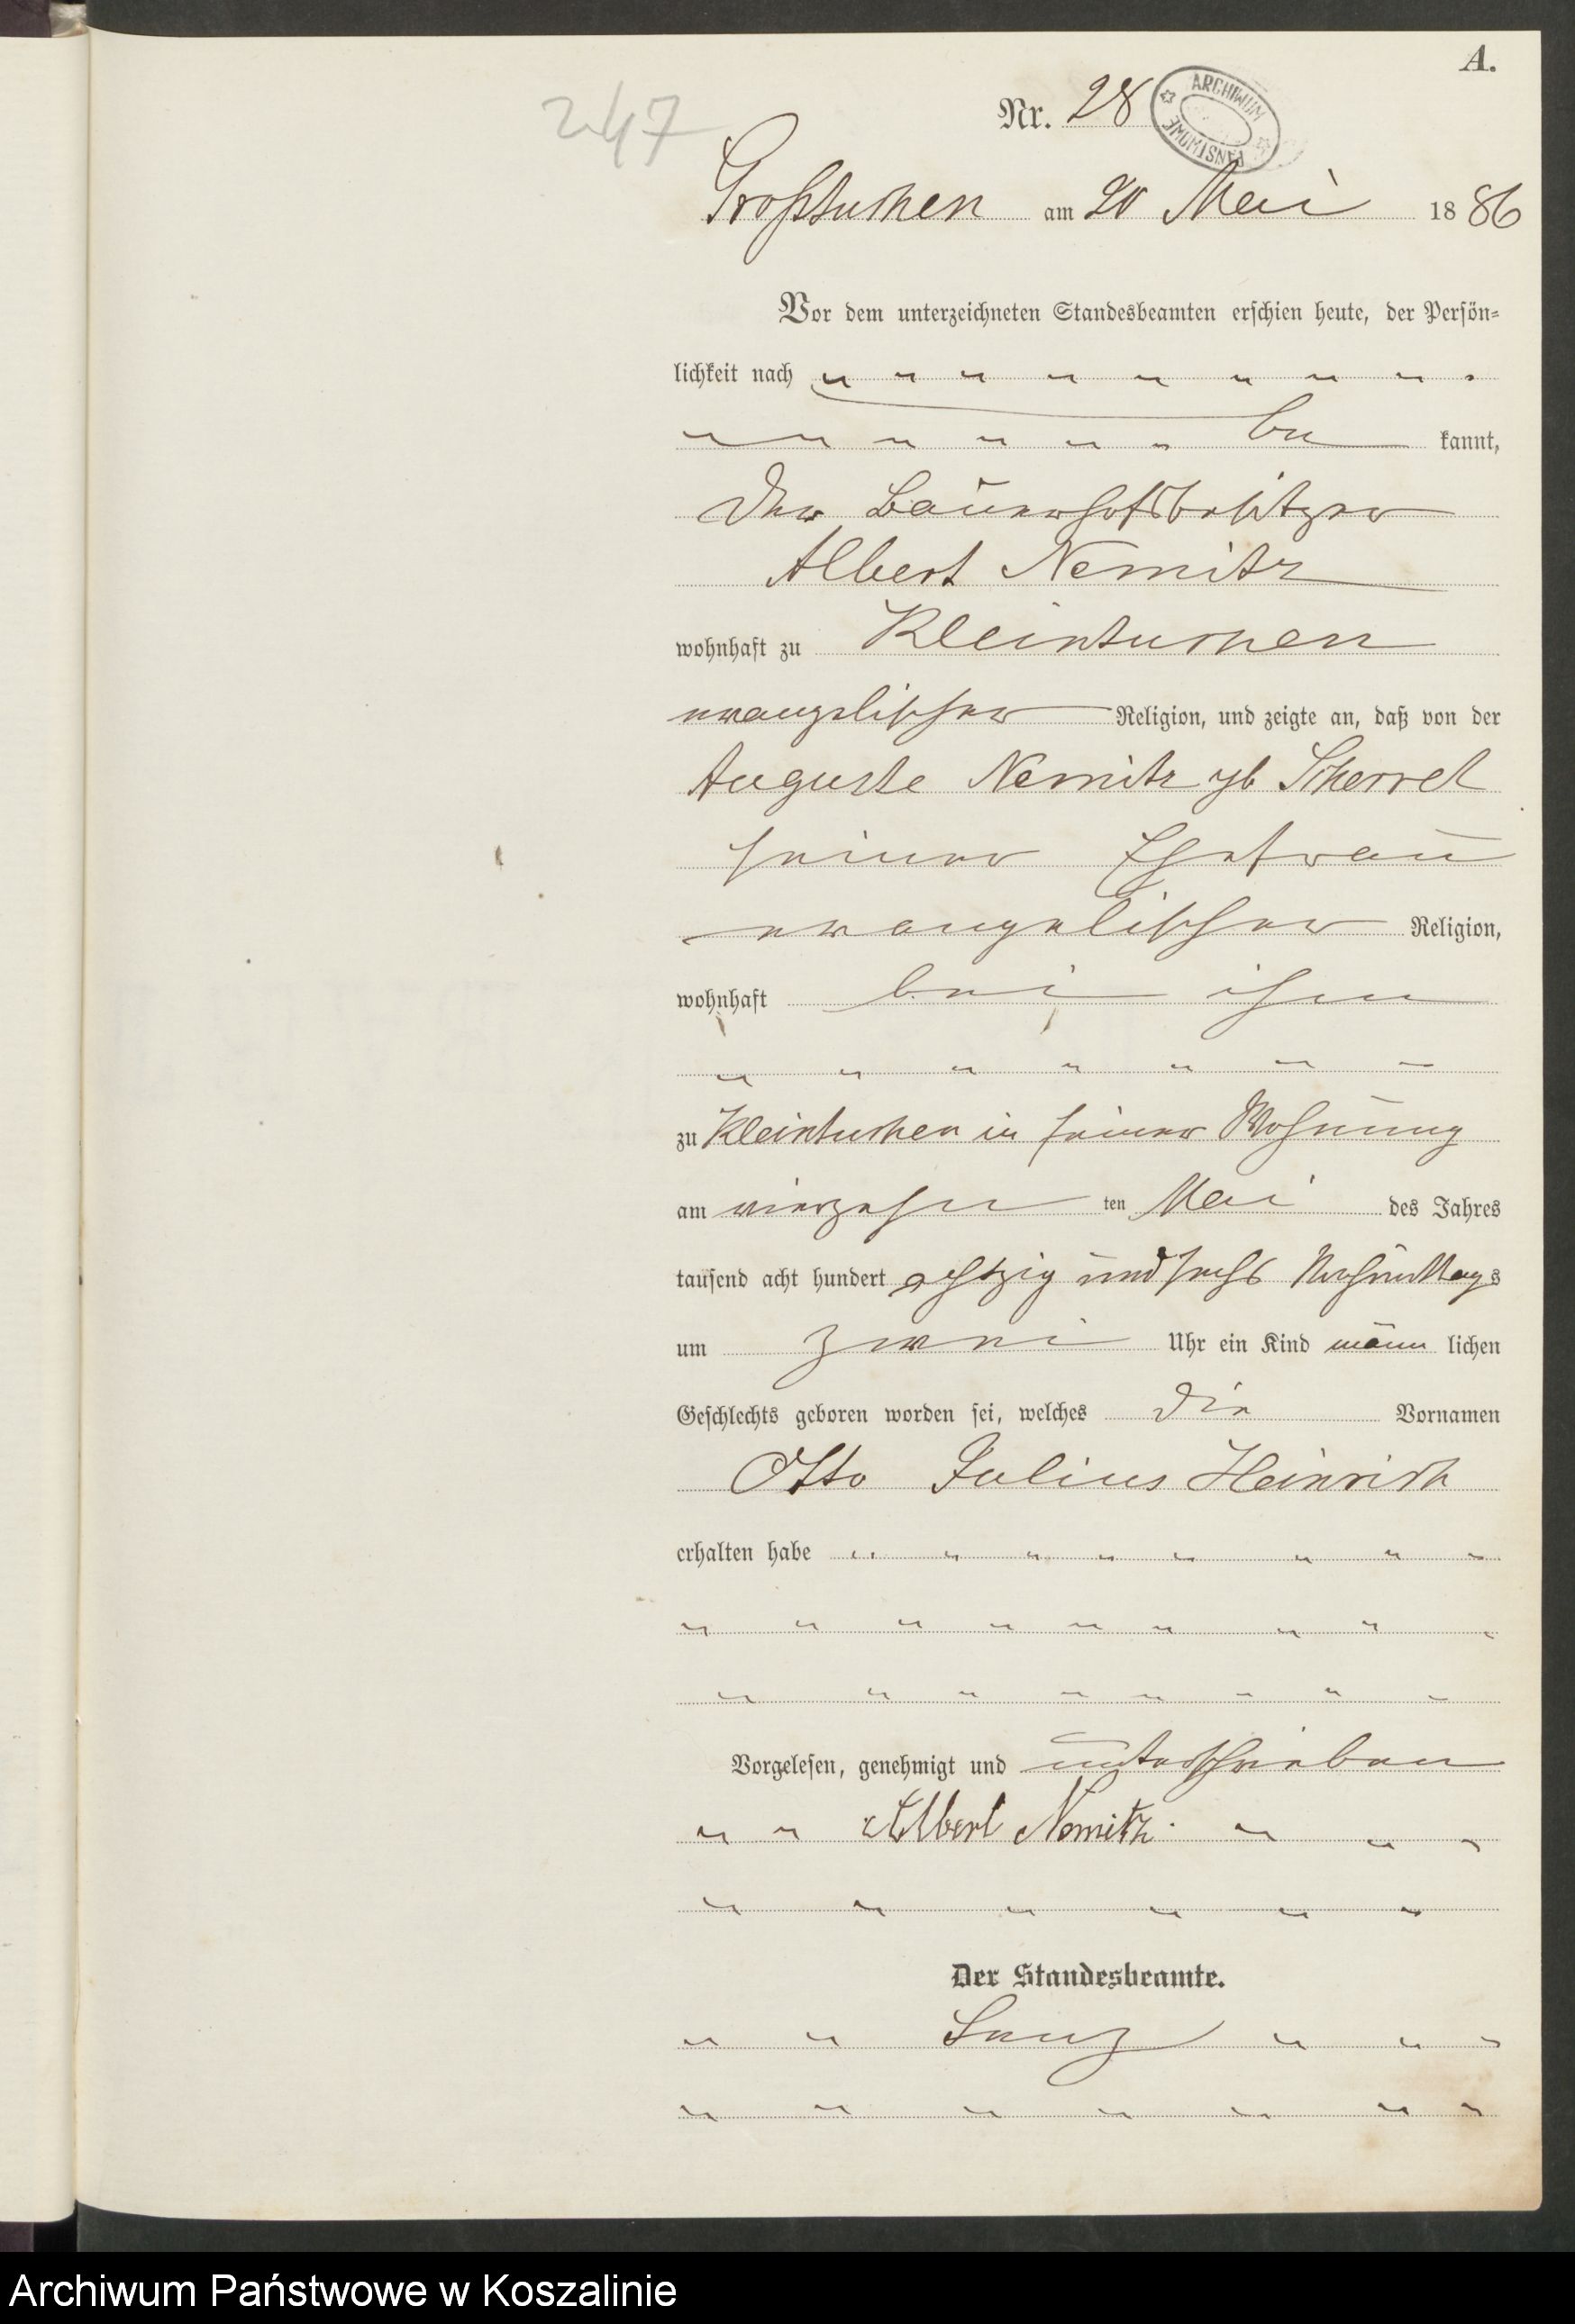 A.
247
Nr. 28
ARCHIWUM PAŃSTWOWE
Großtuchen am 20 Mai 1886
Vor dem unterzeichneten Standesbeamten erschien heute, der Persön-
lichkeit nach " " " " " " " " "
" " " " " " be kannt,
der Bauerhofsbesitzer
Albert Nemitz
wohnhaft zu Kleintuchen
evangelischer Religion, und zeigte an, daß von der
Auguste Nemitz gb Scherret
seiner Ehefrau
evangelischer Religion,
wohnhaft bei ihm
" " " " " " "
zu Kleintuchen in seiner Wohnung
am vierzehn ten Mai des Jahres
tausend acht hundert achtzig und sechs Nachmittags
um zwei Uhr ein Kind männ lichen
Geschlechts geboren worden sei, welches die Vornamen
Otto Julius Heinrich
erhalten habe " " " " " " " "
" " " " " " " " "
" " " " " " " "
Vorgelesen, genehmigt und unterschrieben
" " Albert Nemitz. " " "
" " " " " "
Der Standesbeamte.
" " " " "
" " " " " " "
Archiwum Państwowe w Koszalinie